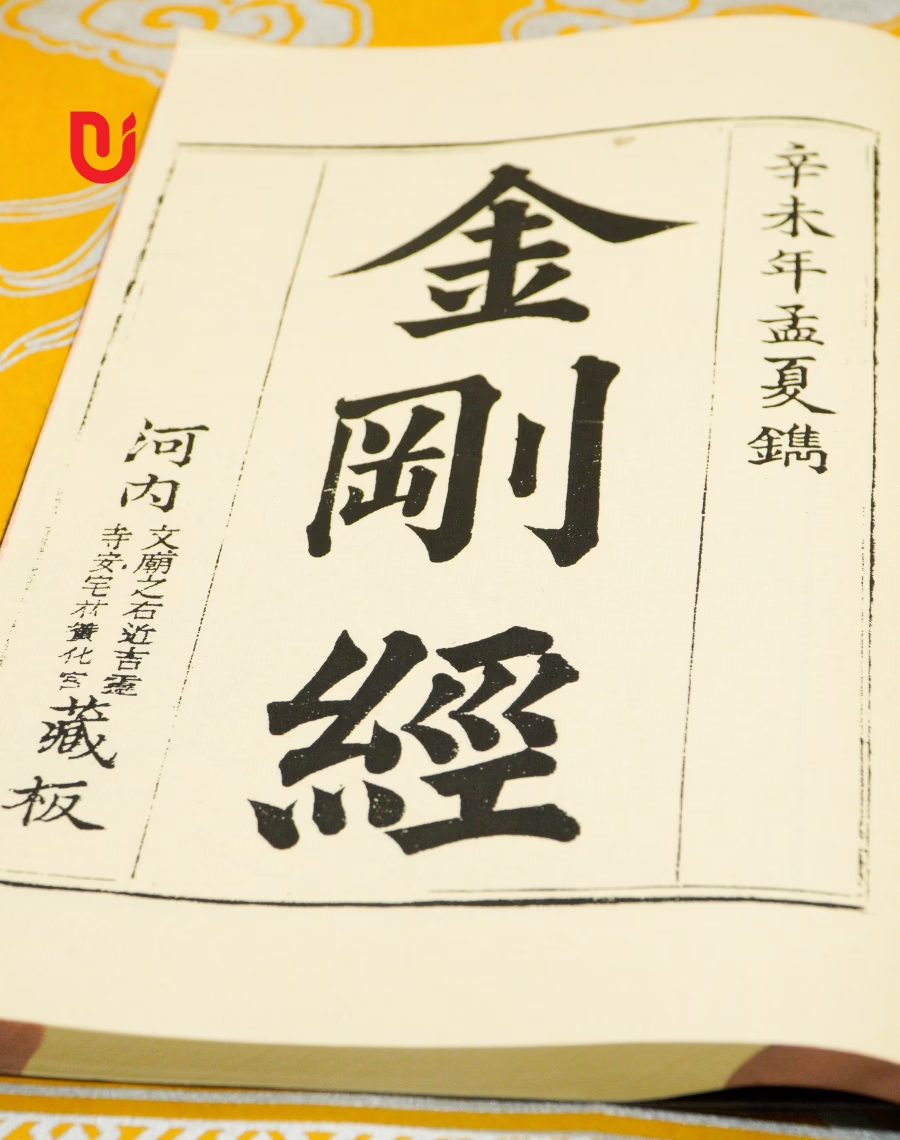 辛未年孟夏鐫
金剛經
河内
文廟之右近吉靈
寺安宅村黃化宮
藏板